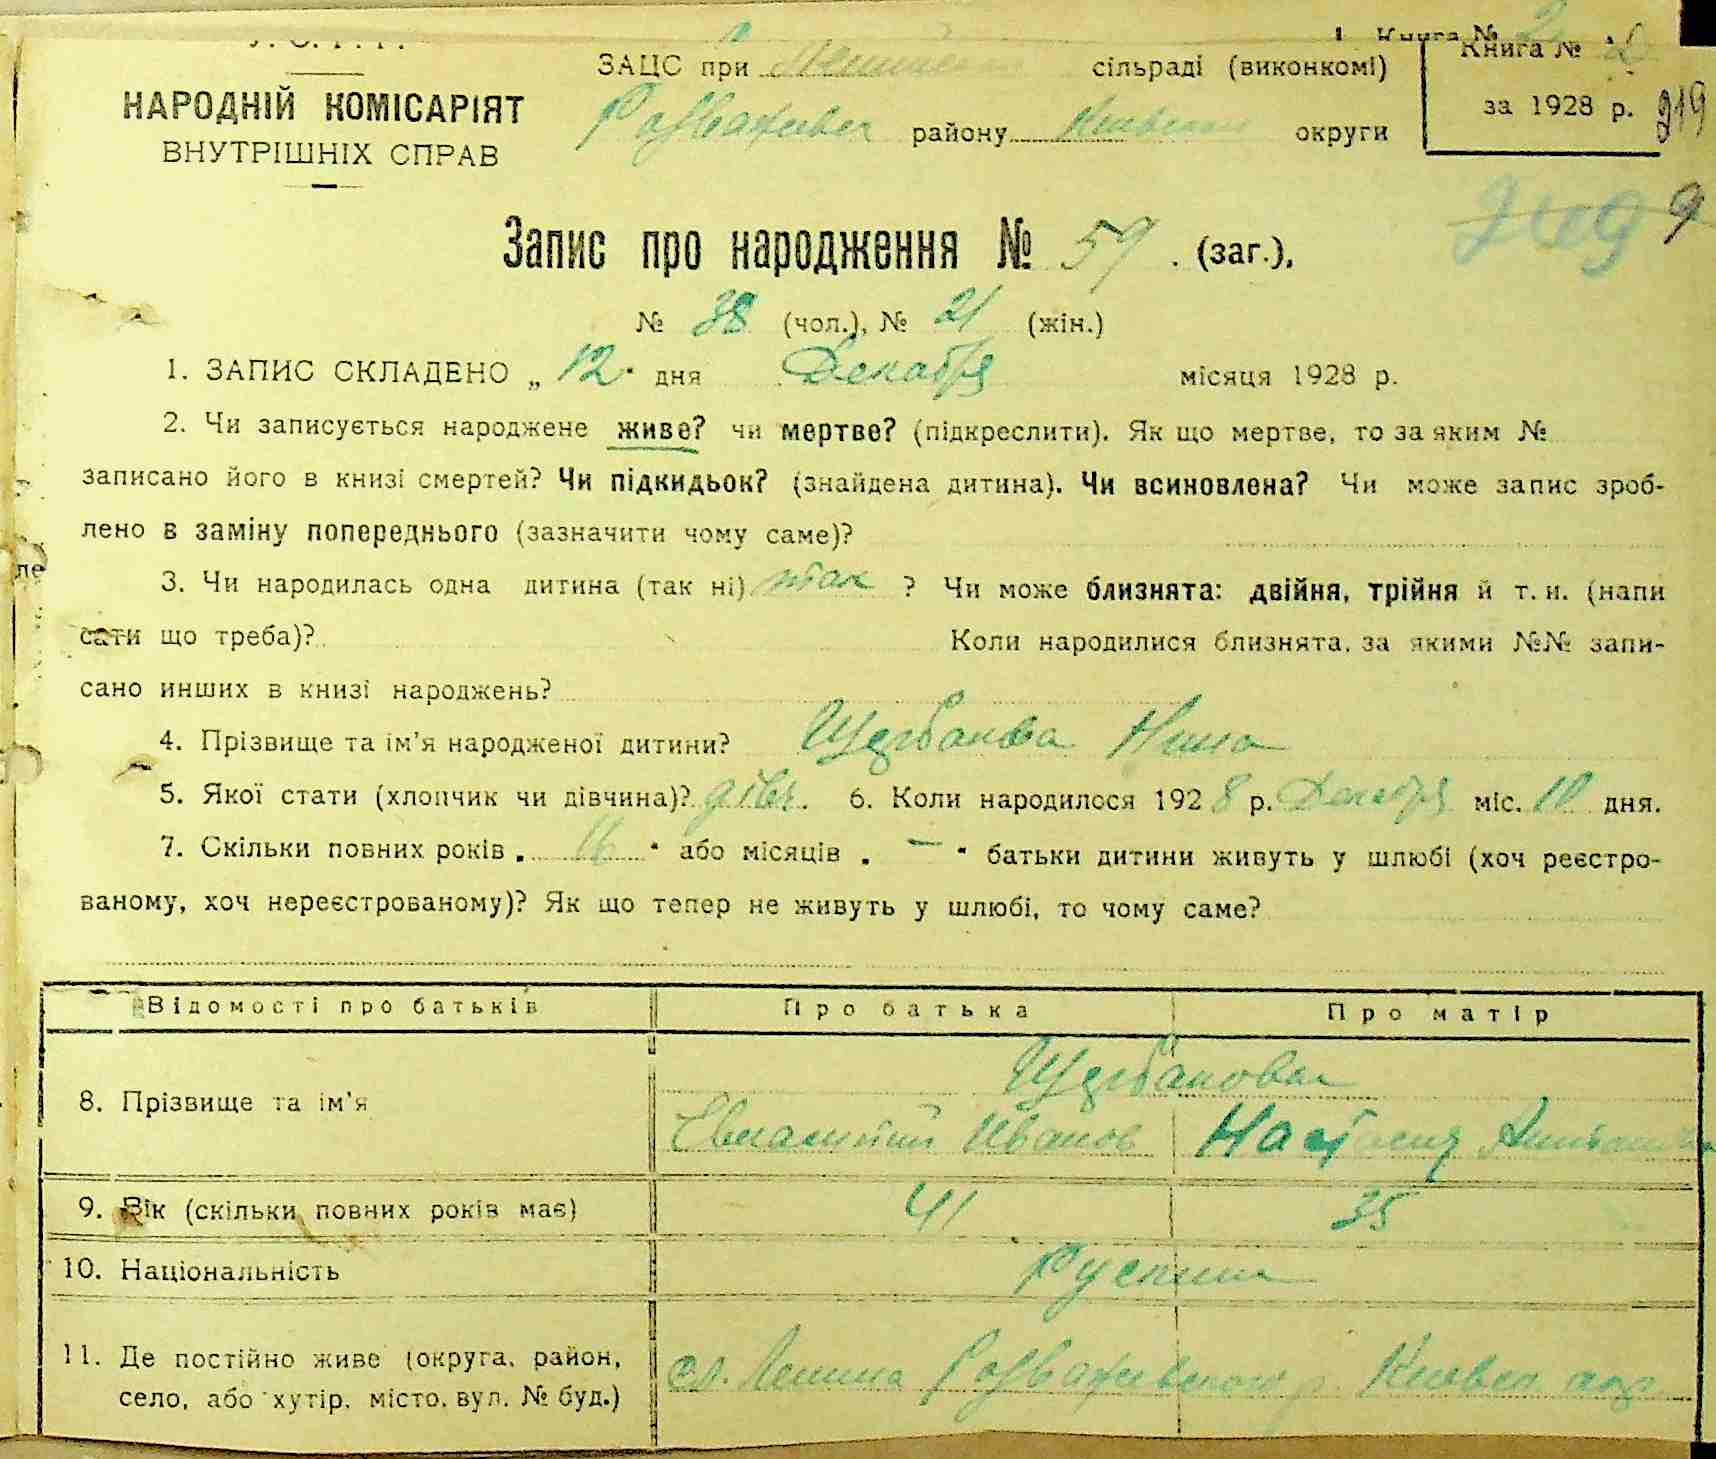 Книга №
ЗАЦС при сільраді (виконкомі)
Книга №
за 1928 р. 219
НАРОДНІЙ КОМІСАРІЯТ
ВНУТРІШНІХ СПРАВ
району округи
9
Запис про народження № 59 . (заг.),
№ 38 (чол.), № 21 (жін.)
1. ЗАПИС СКЛАДЕНО „ 12 " дня Декабря місяця 1928 р.
2. Чи записується народжене живе? чи мертве? (підкреслити). Як що мертве, то за яким №
записано його в книзі смертей? Чи підкидьок? (знайдена дитина). Чи всиновлена? Чи може запис зроб-
лено в заміну попереднього (зазначити чому саме)?
3. Чи народилась одна дитина (так ні) так ? Чи може близнята: двійня, трійня й т. и. (напи
сати що треба)? Коли народилися близнята, за якими №№ запи-
сано инших в книзі народжень?
4. Прізвище та ім'я народженої дитини? Щербакова Нина
5. Якої стати (хлопчик чи дівчина)? дівч. 6. Коли народилося 1928 р. Декабря міс. 10 дня.
7. Скільки повних років „ 16 " або місяців „ — " батьки дитини живуть у шлюбі (хоч реєстро-
ваному, хоч нереєстрованому)? Як що тепер не живуть у шлюбі, то чому саме?
Відомості про батьків Про батька Про матір
8. Прізвище та ім'я Щербаковы
Иванов Настасия
9. Вік (скільки повних років має) 41 35
10. Національність Руские
11. Де постійно живе (округа, район,
село, або хутір, місто, вул. № буд.) Ленина